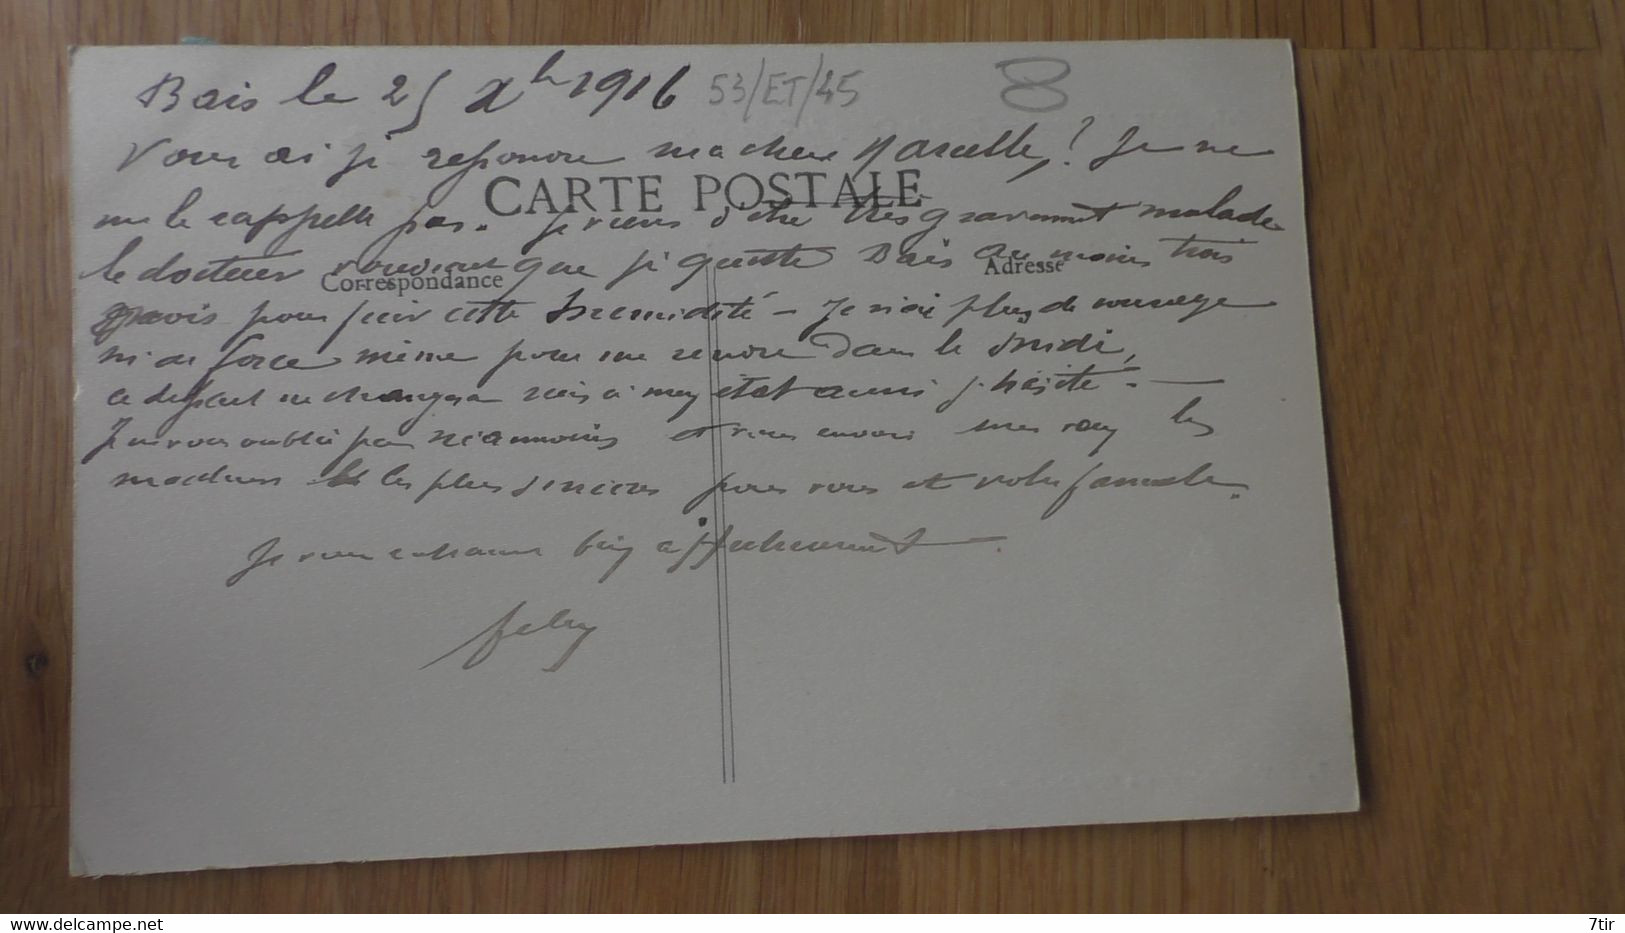 Bais le 25 Xb 1916 53/ET/45 8
Vous ai je repondu ma chere Marcelle, ? Je ne
CARTE POSTALE
me le rappelle pas. Je viens d'etre tres gravement malade
le docteur voudrait que je quitte Bais au moins trois
Correspondance
Adresse
mois pour fuir cette humidité - Je n'ai plus de courage
ni de force même pour me rendre dans le midi,
ce depart ne changera rien à mon état aussi j'hésite. -
Je ne vous oublie pas néanmoins et vous envoie mes voeux les
meilleurs et les plus sinceres pour vous et votre famille.
Je vous embrasse bien affectueusement.
delcampe.net
7tir